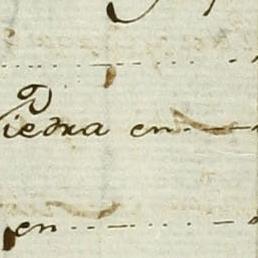 Piedra en
en